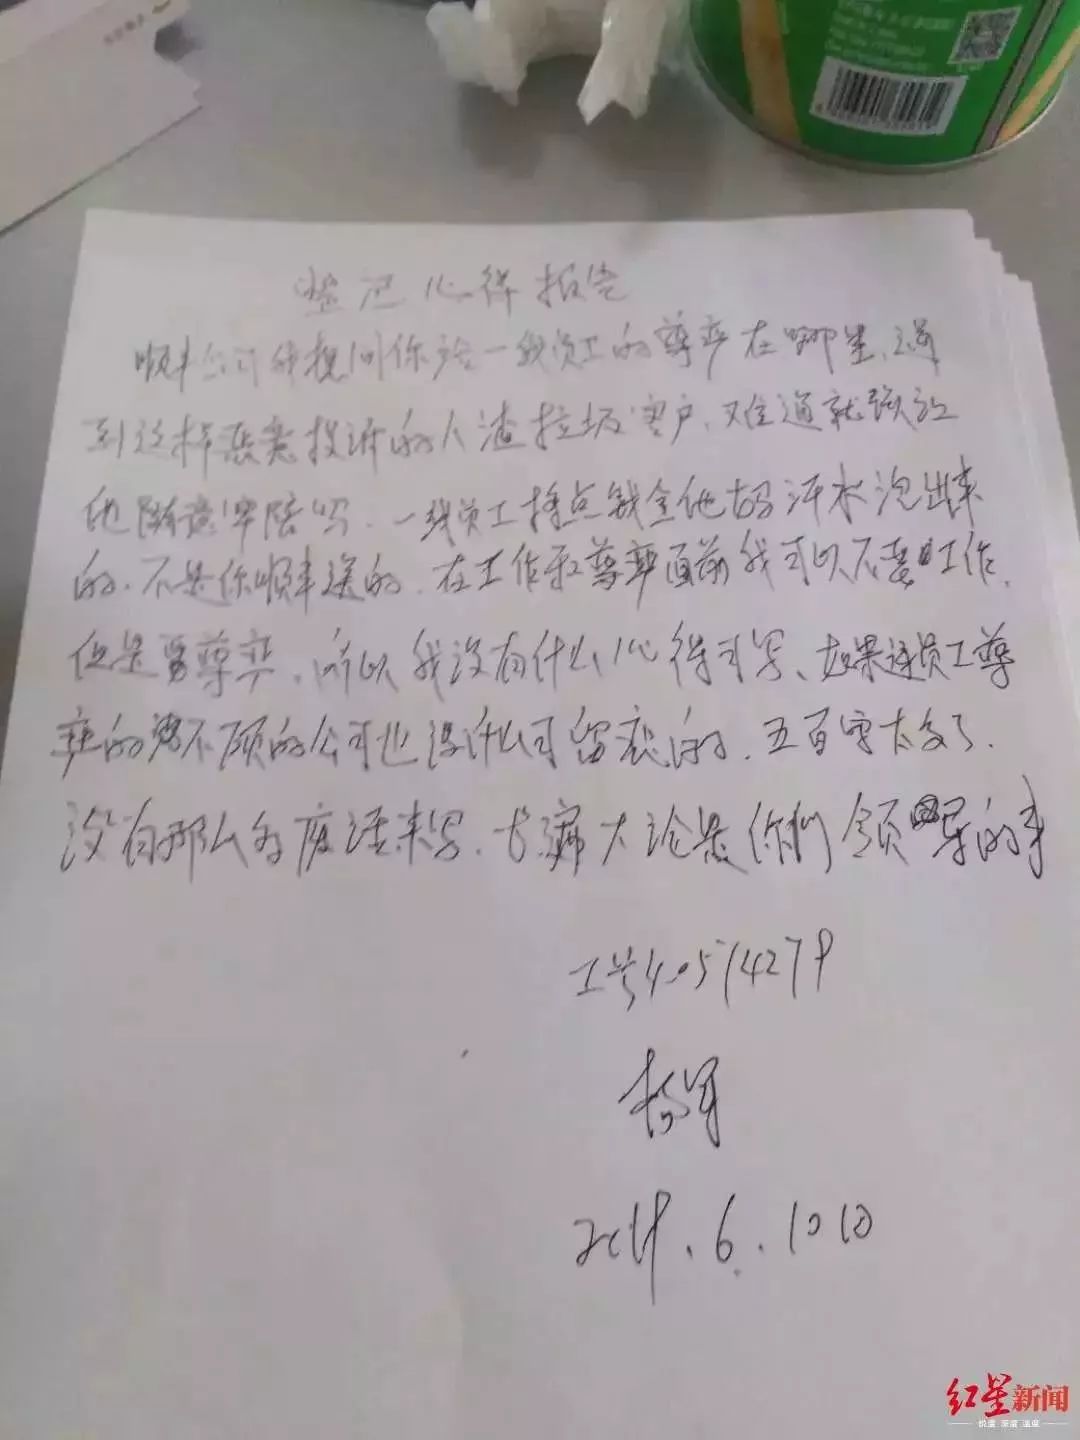 整改心得报告
顺丰公司我想问你给一线员工的尊严在哪里,遇
到这样恶意投诉的人渣垃圾客户,难道就强让
他随意牢陪吗.一线员工挣点钱全他妈汗水泡出来
的.不是你顺丰送的.在工作和尊严面前我可以不要工作.
但是要尊严.所以我没有什么心得可写、如果连员工尊
严的都不顾的公司也没什么可留恋的.五百字太多了.
没有那么多废话来写.长篇大论是你们领导的事
工号40574279
杨军
2019.6.10日
红星新闻